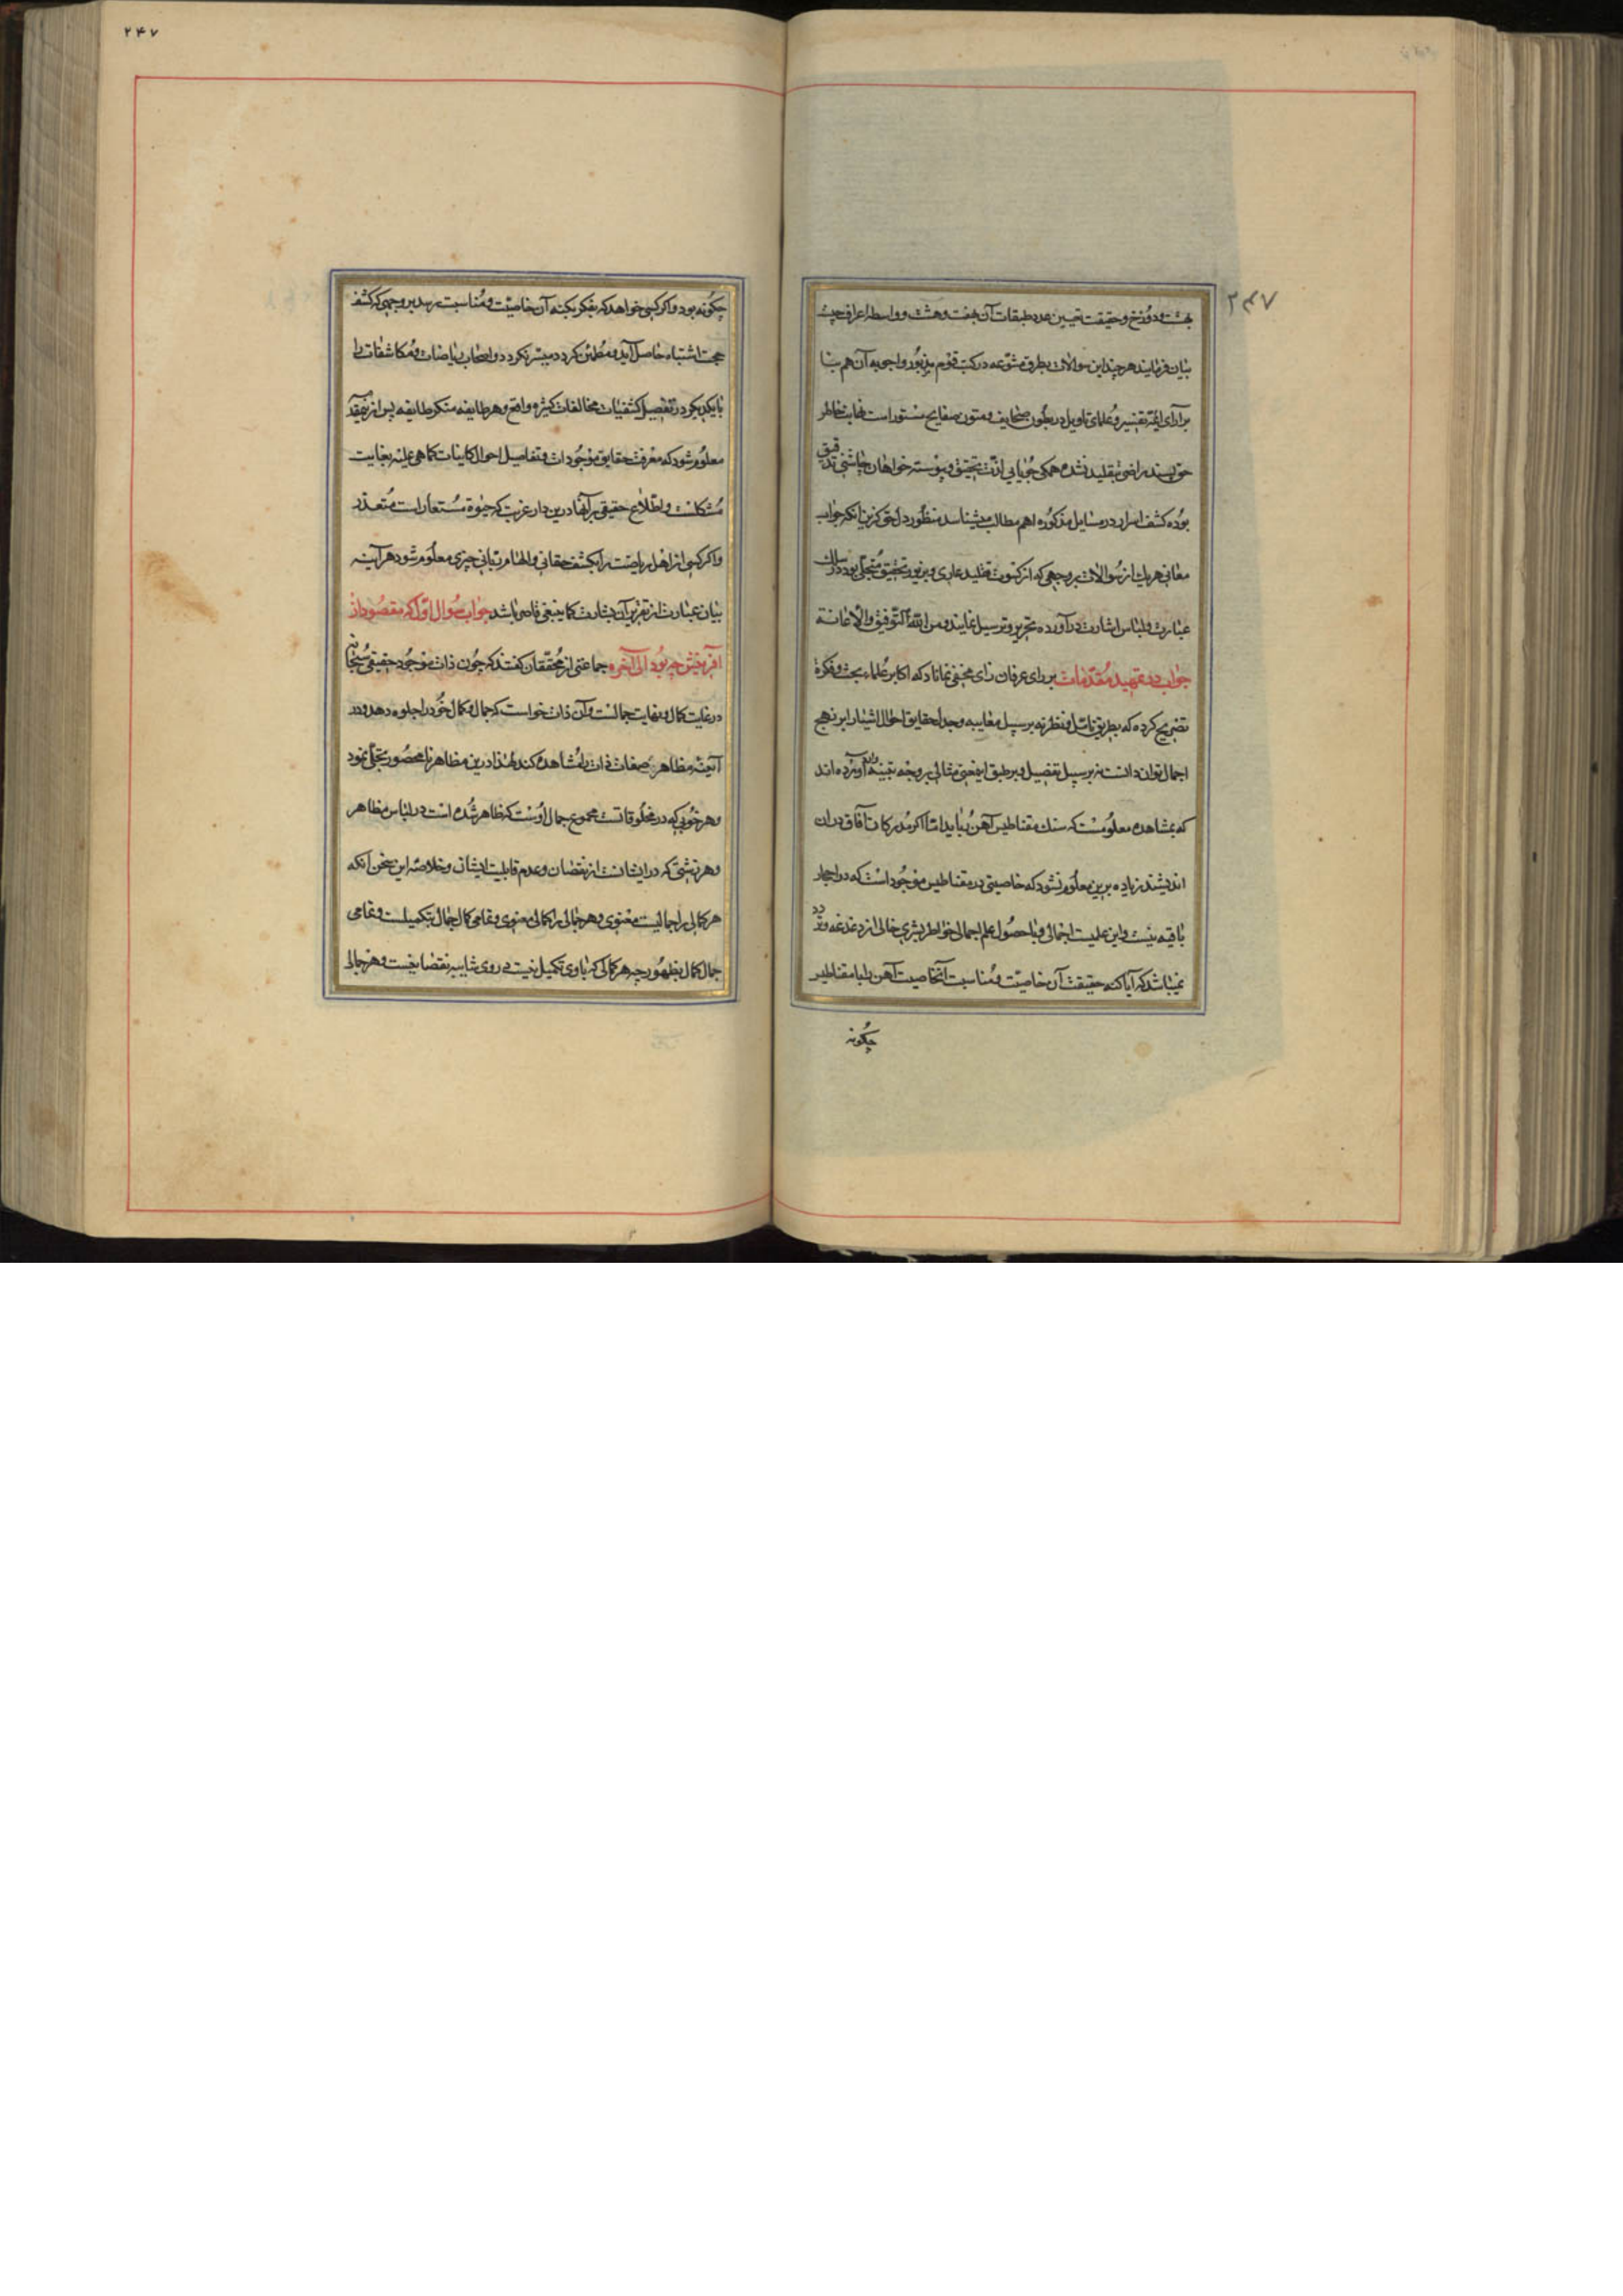 ۲۴۷
بهشت و دوزخ و حقیقت تعیین عدد طبقات آن بهفت و هشت و واسطه اعراف چیست
بیان فرمایند هرچند این سوالات بطرق متنوعه در کتب قوم مزبور و اجوبه آن هم بنا
برآرای ائمه تفسیر و علمای تاویل در بطون صحایف و متون صفایح مستور است فاما خاطر
حق پسند راضی بتقلید نشده همکی جویای لذت تحقیق و پیوسته خواهان چاشنی تدقیق
بوده کشف اسرار در مسایل مذکوره اهم مطالب میشناسد منظور دل حق کزین انکه جواب
معانی هر یک از سوالات بر وجهی که از کسوت تقلید عاری و بزیور تحقیق متجلی بود در سلک
عبارت و لباس اشارت درآورده بتحریر و ترسیل نمایند و من الله التوفیق والاعانة
جواب در تمهید مقدمات بر رای عرفان رای مخفی نماناد که اکابر علماء بحث و فکرة
تصریح کرده که بطریق تامل و نظر نه بر سبیل مغایبه وجد احقایق احوال اشیا را بر نهج
اجمال توان دانست نه بر سبیل تفصیل و بر طبق اینمعنی مثالی بر وجه تنبیه وام آورده اند
که بمشاهده معلومست که سنک مقناطیس آهن رباید اما اکر مدرکات آفاق در ان
اندیشند زیاده برین معلوم نشود که خاصیتی در مقناطیس موجود است که در احجار
باقیه نیست و این علمیست اجمالی و با حصول علم اجمالی خواطر بشری خالی از دغدغه و تردد
نمیباشد که آیا کنه حقیقت آن خاصیت و مناسبت آنخاصیت آهن را با مقناطیس
چکونه
۲۴۷
چکونه بود و اکر کسی خواهد که بفکر بکنه آن خاصیت و مناسبت رسد بر وجهی که کشف
حجب اشتباه حاصل آید و مطمئن کردد میسر نکردد و اصحاب ریاضات و مکاشفات را
با یکدیکر در تفصیل کشفیات مخالفات کثیره واقع و هر طایفه منکر طایفه پس ازین مقدمه
معلوم شود که معرفت حقایق موجودات و تفاصیل احوال کاینات کما هی علیه بغایت
مشکلست و اطلاع حقیقی بر آنها درین دار غربت که حیوة مستعار است متعذر
و اکر کسی از اهل ریاضت را بکشف حقانی و الهام ربانی چیزی معلوم شود هرآینه
بیان عبارت از تقریر آن بشارت کما ینبغی قاصر باشد جواب سوال اول که مقصود از
آفرینش چه بود الی آخره جماعتی از محققان کفتند که چون ذات موجود حقیقی سبحانه
در غایت کمال و نهایت جمالست و آن ذات خواست که جمال و کمال خود را جلوه دهد و در
آئینه مظاهر صفات ذات را مشاهده کند لهذا درین مظاهر نامحصور تجلی نمود
و هر خوبی که در مخلوقاتست مجموع جمال اوست که ظاهر شده است در لباس مظاهر
و هر زشتی که در ایشانست از نقصان و عدم قابلیت ایشان و خلاصه این سخن آنکه
هر کمالی را جمالیست معنوی و هر جمالی را کمالی معنوی و تمامی کمال جمال بتکمیلست و تمامی
جمال کمال بظهور چه هر کمالی که با وی تکمیل نیست در وی شایبه نقصانیست و هر جمال